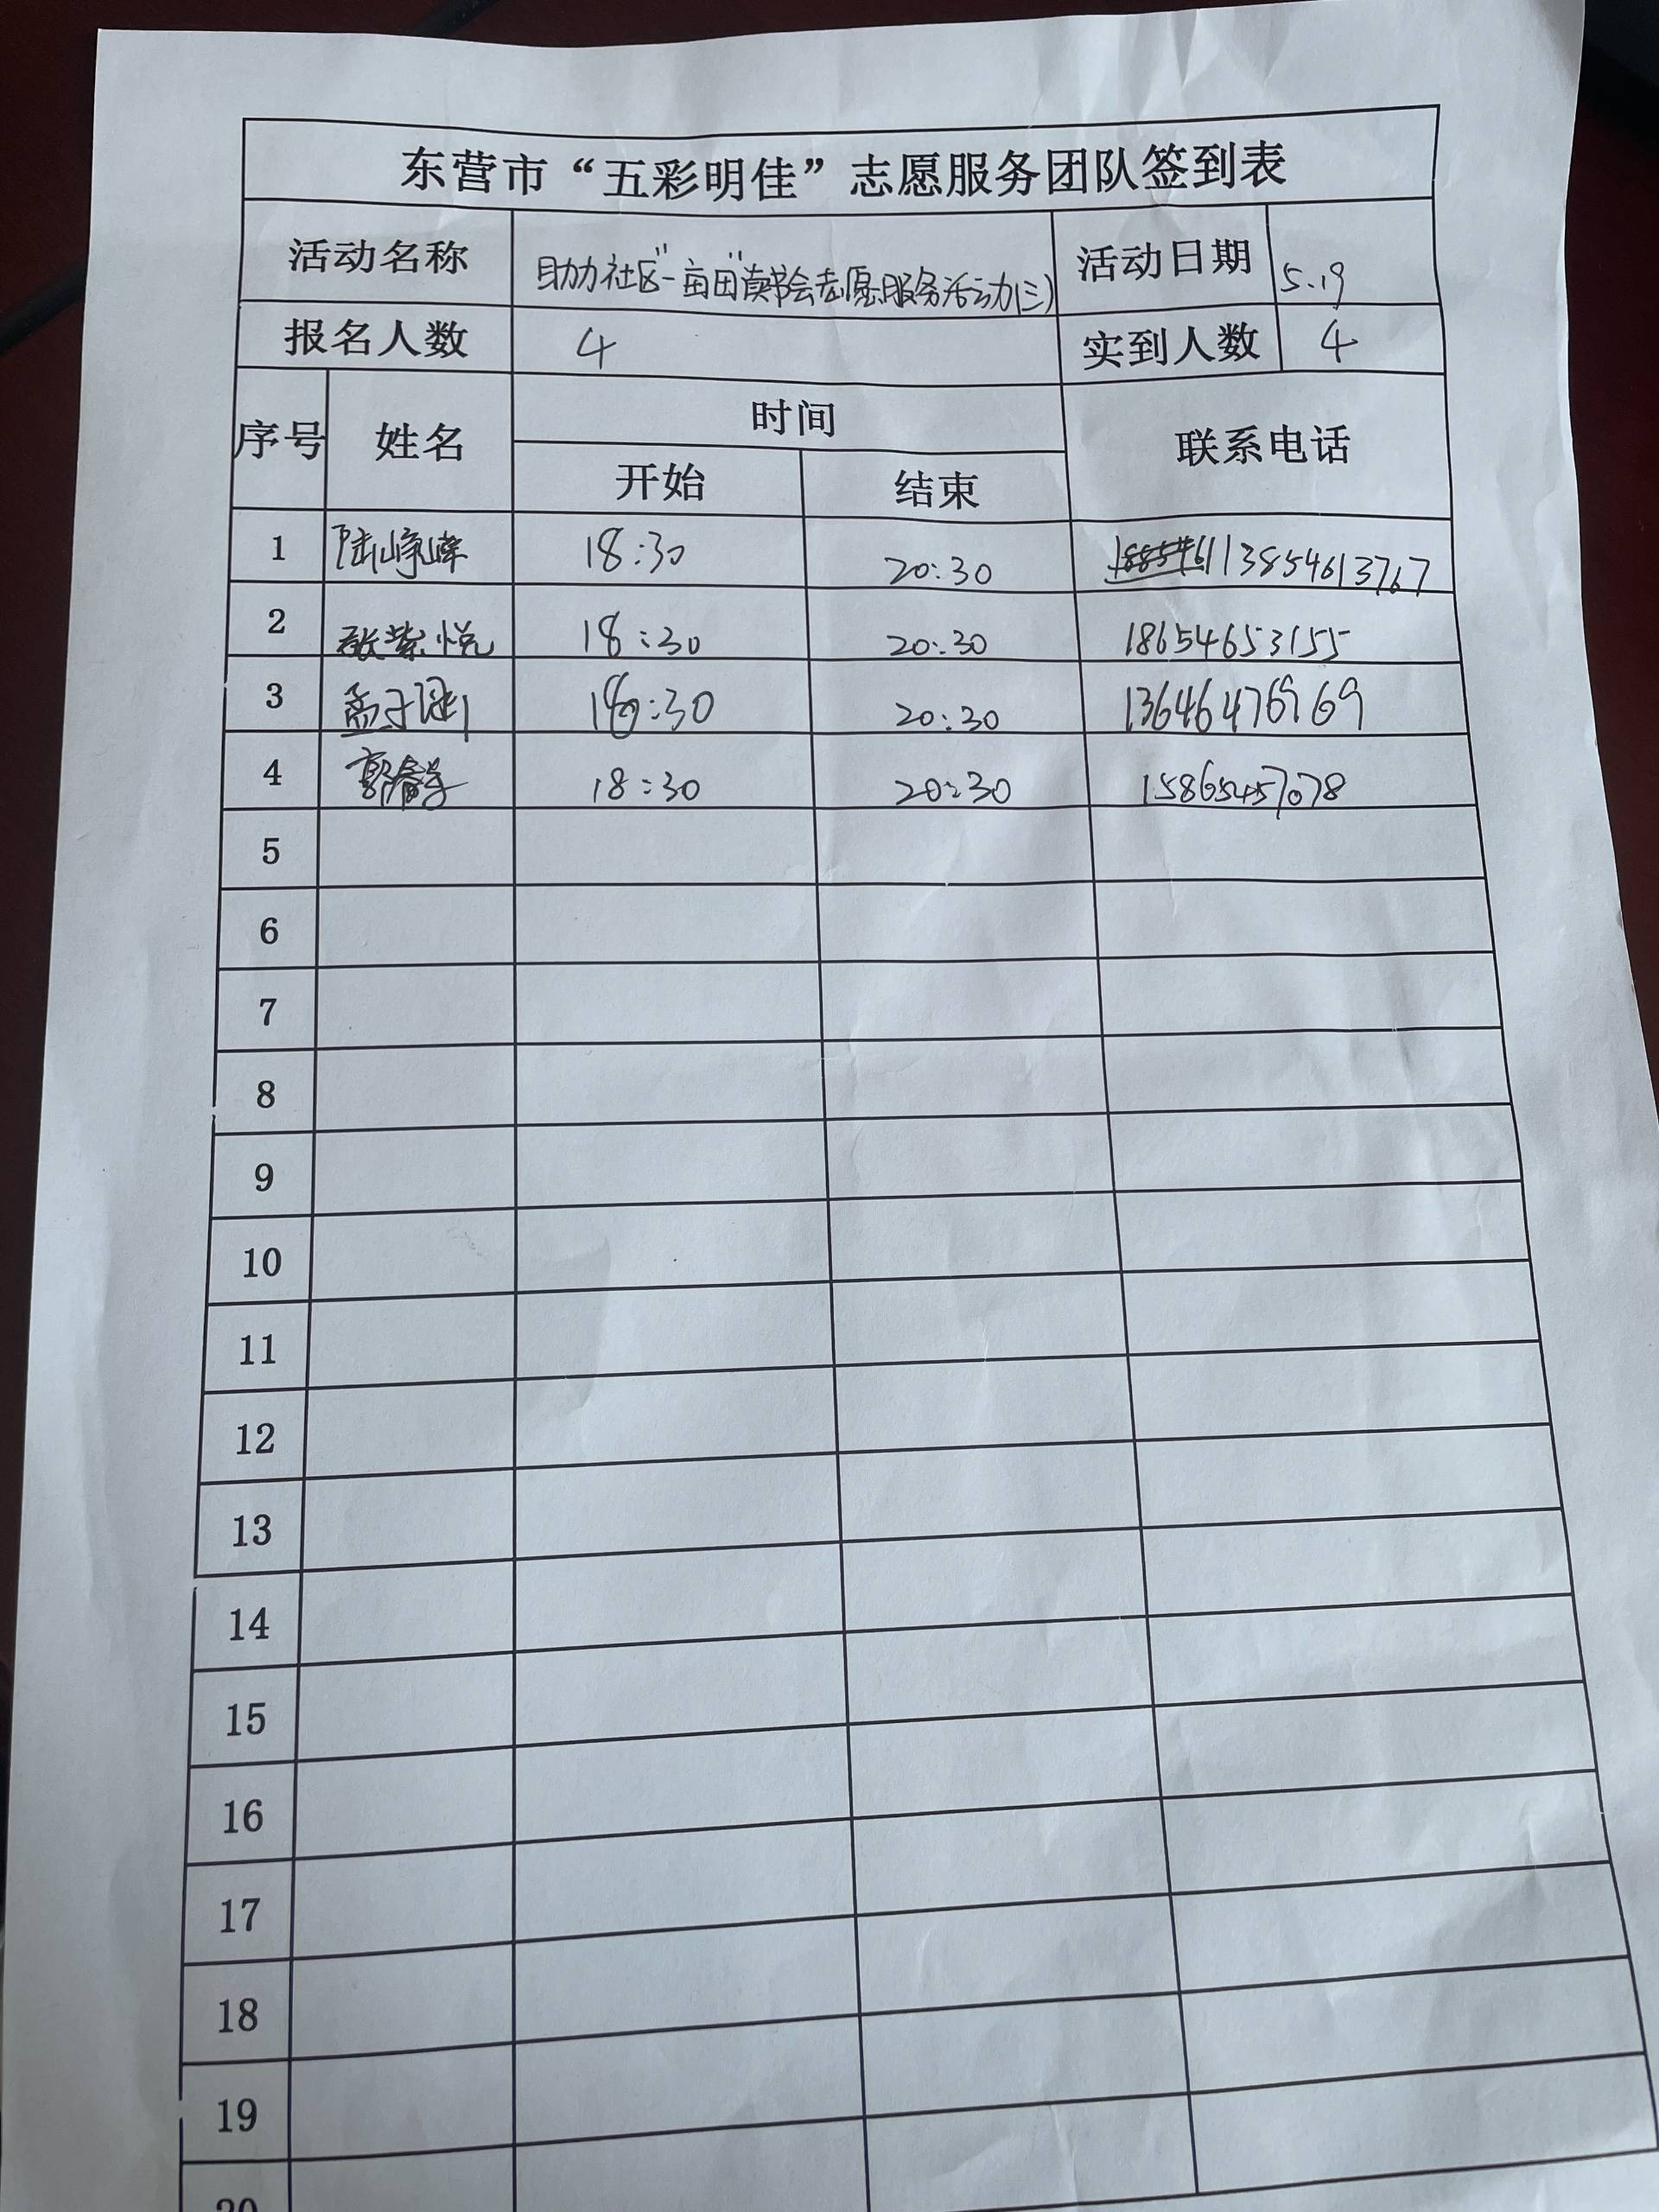 东营市“五彩明佳”志愿服务团队签到表
活动名称 助力社区“一亩田”读书会志愿服务活动(三) 活动日期 5.19
报名人数 4 实到人数 4
序号 姓名 时间 联系电话
开始 结束
1 陆峥嵘 18:30 20:30 13854613767
2 张紫悦 18:30 20:30 18654653155
3 孟子 18:30 20:30 13646476969
4 郭 18:30 20:30 15865457078
5
6
7
8
9
10
11
12
13
14
15
16
17
18
19
20